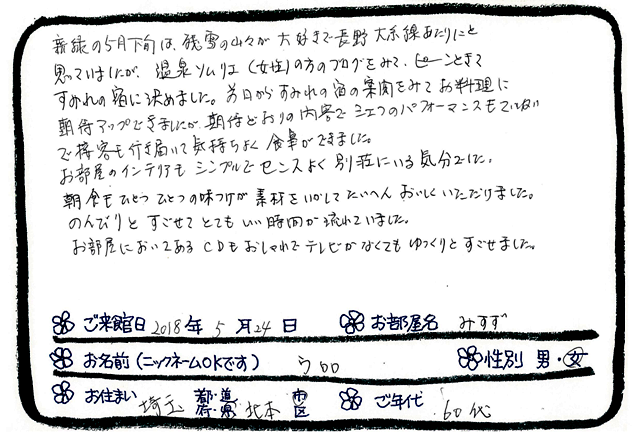 新緑の5月下旬は、残雪の山々が大好きで長野大糸線あたりにと
思っていましたが、温泉ソムリエ(女性)の方のブログをみて、ピーンときて
すみれの宿に決めました。前日からすみれの宿の案内をみてお料理に
期待アップできましたが期待どおりの内容でシェフのパフォーマンスも
で接客も行き届いて気持ちよく食事ができました。
お部屋のインテリアもシンプルでセンスよく別荘にいる気分でした。
朝食もひとつひとつの味つけが素材をいかしてたいへんおいしくいただけました。
のんびりとすごせてとてもいい時間が流れていました。
お部屋においてあるCDもおしゃれでテレビがなくてもゆっくりとすごせました。
ご来館日 2018年 5月24日 お部屋名 みすず
お名前(ニックネームOKです) 性別 男・女
お住まい 埼玉 都・道 府・県 北本 市 区 ご年代 60代